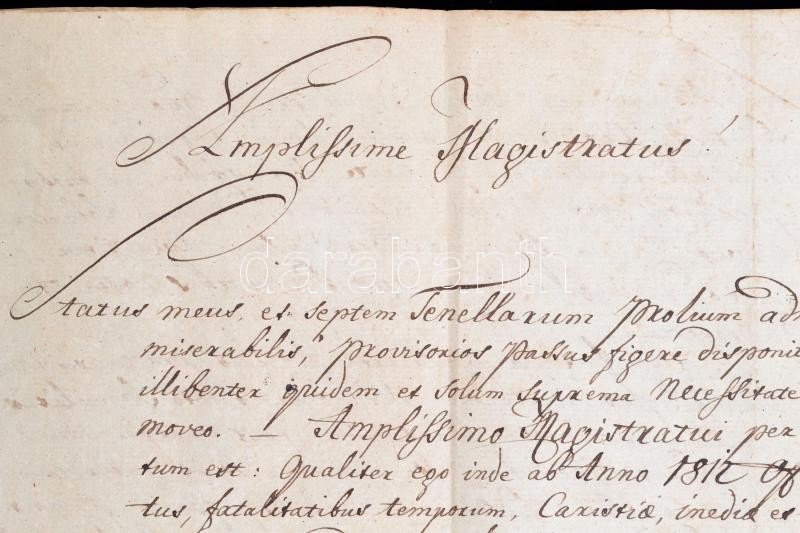 Amplissime Magistratus!
Status meus, et septem Tenellarum Prolium adm
miserabilis, provisorios passus figere disponit
illibenter quidem et solum suprema Necessitate
moveo. — Amplissimo Magistratui per
tum est: Qualiter ego inde ab Anno 1812
tus, fatalitatibus temporum, Caristiæ, inediæ et
darabanth